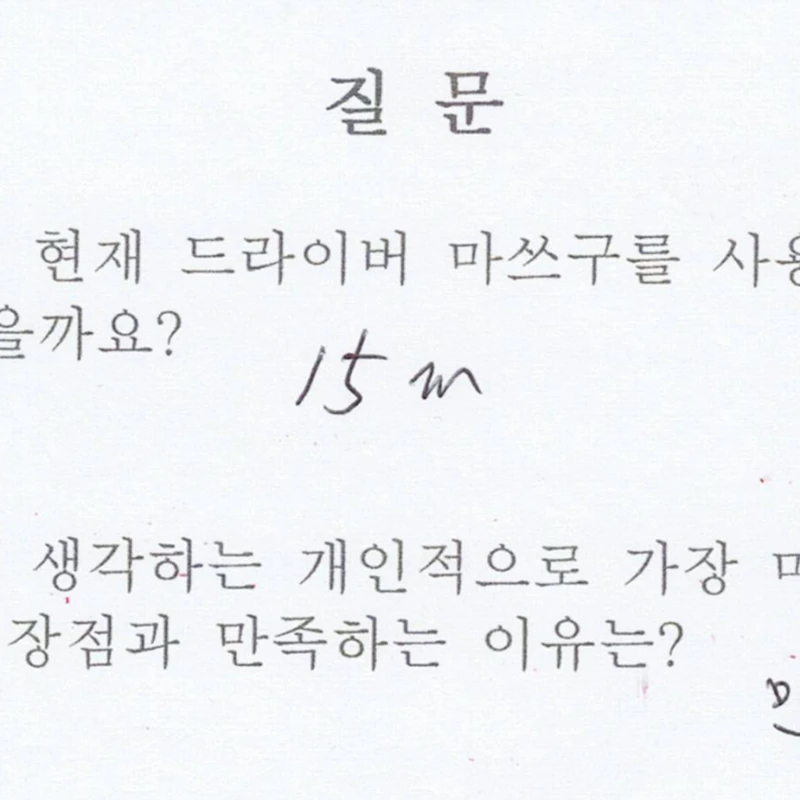 질 문
현재 드라이버 마쓰구를 사용
을까요?
15 m
생각하는 개인적으로 가장
장점과 만족하는 이유는?